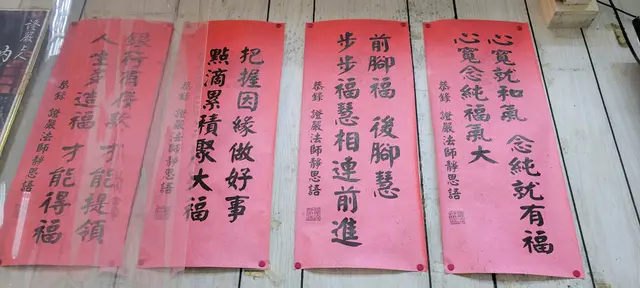 心寬就和氣 念純就有福
心寬念純福氣大
恭錄 證嚴法師靜思語
前腳福 後腳慧
步步福慧相連前進
恭錄 證嚴法師靜思語
把握因緣做好事
點滴累積聚大福
恭錄 證嚴法師靜思語
銀行有存款 才能提領
人生有造福 才能得福
恭錄 證嚴法師靜思語
證嚴上人